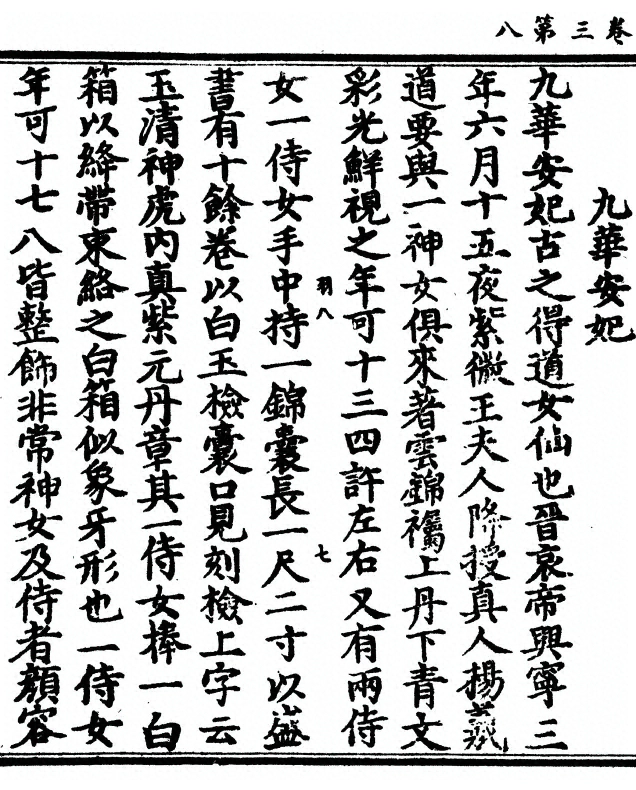 卷三第八
九華安妃
九華安妃古之得道女仙也晉哀帝興寧三
年六月十五夜紫微王夫人降授真人楊羲
道要與一神女俱來著雲錦襡上丹下青文
彩光鮮視之年可十三四許左右又有兩侍
羽八
七
女一侍女手中持一錦囊長一尺二寸以盛
書有十餘卷以白玉檢囊口見刻檢上字云
玉清神虎内真紫元丹章其一侍女捧一白
箱以絳帶束絡之白箱似象牙形也一侍女
年可十七八皆整飾非常神女及侍者顏容